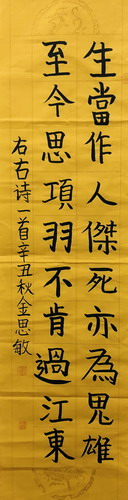 生當作人傑死亦為鬼雄
至今思項羽不肯過江東
右古诗一首辛丑秋金思敏